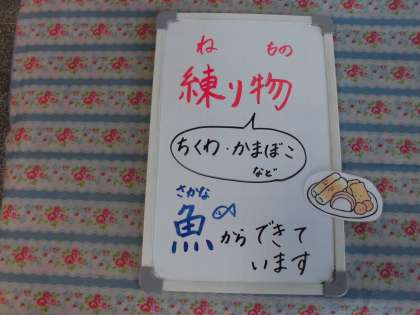 ね ちの
練り物
ちくわ・かまぼこ
など
さかな
魚からできて
います